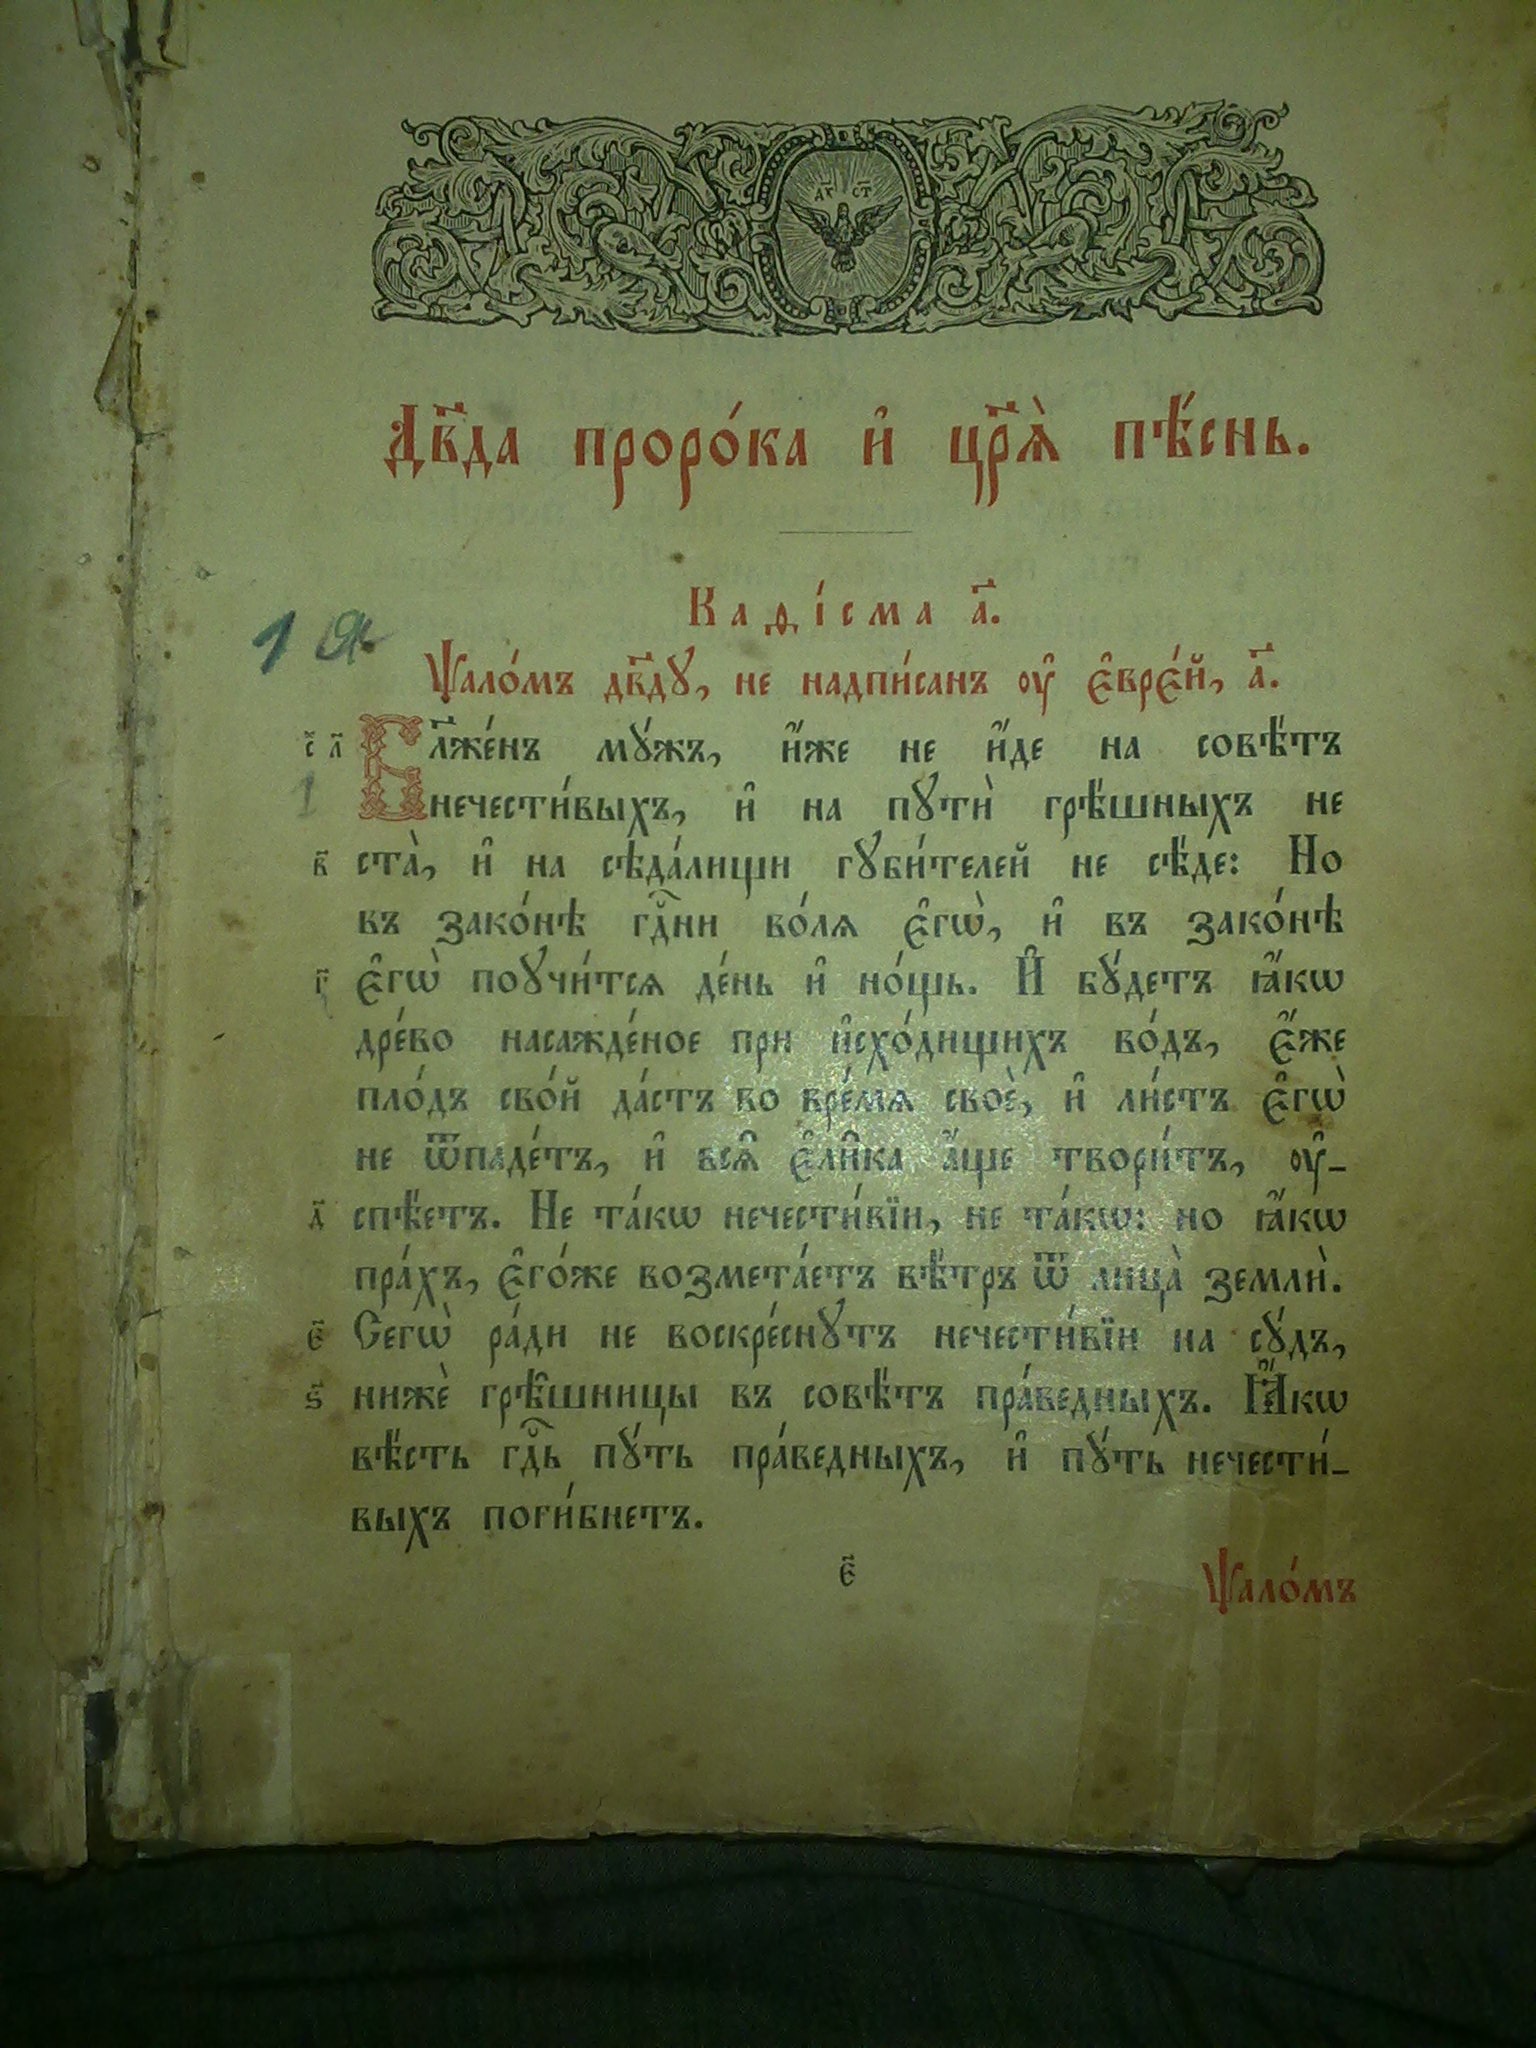 дх҃ъ ст҃
Дв҃да проро́ка и҆ цр҃ѧ̀ пѣ́снь.
Каѳі́сма а҃.
1 я
Ѱало́мъ дв҃дꙋ, не надпи́санъ ᲂу҆ є҆вре́й, а҃.
с҃ л҃ Бл҃же́нъ мꙋ́жъ, и҆́же не и҆́де на совѣ́тъ
1 нечести́выхъ, и҆ на пꙋтѝ грѣ́шныхъ не
в҃ ста̀, и҆ на сѣда́лищи гꙋби́телей не сѣ́де: Но
въ зако́нѣ гдⷭ҇ни во́лѧ є҆гѡ̀, и҆ въ зако́нѣ
г҃ є҆гѡ̀ поꙋчи́тсѧ де́нь и҆ но́щь. И҆ бꙋ́детъ ꙗ҆́кѡ
дре́во насажде́ное при и҆схо́дищихъ во́дъ, є҆́же
пло́дъ сво́й да́стъ во вре́мѧ своѐ, и҆ ли́стъ є҆гѡ̀
не ѿпаде́тъ, и҆ всѧ̑ є҆ли̑ка а҆́ще твори́тъ, ᲂу҆-
д҃ спѣ́етъ. Не та́кѡ нечести́вїи, не та́кѡ: но ꙗ҆́кѡ
пра́хъ, є҆го́же возмета́етъ вѣ́тръ ѿ лица̀ землѝ.
є҃ Сегѡ̀ ра́ди не воскре́снꙋтъ нечести́вїи на сꙋ́дъ,
ѕ҃ нижѐ грѣ̑шницы въ совѣ́тъ пра́ведныхъ. Ꙗ҆́кѡ
вѣ́сть гдⷭ҇ь пꙋ́ть пра́ведныхъ, и҆ пꙋ́ть нечести́-
выхъ поги́бнетъ.
є҃
Ѱало́мъ